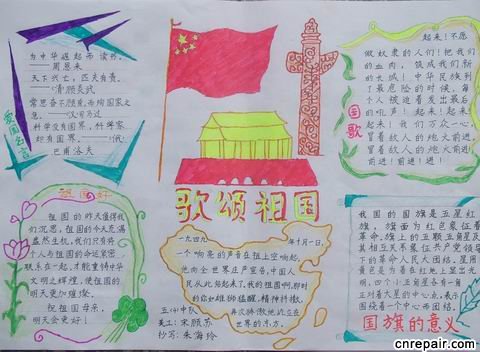 为中华崛起而读书。
——周恩来
天下兴亡,匹夫有责。
——(清)顾炎武
常思奋不顾身,而殉国家之
急。——汉司马迁
科学没有国界,科学家
却有国界。——(俄)
巴甫洛夫
爱国名言
起来!不愿
做奴隶的人们!把我们
的血肉,筑成我们新
的长城!中华民族到
了最危险的时候,每
个人被迫着发出最后
的吼声!起来!起来!
起来!我们万众一心,
冒着敌人的炮火前进,
冒着敌人的炮火前进!
前进!前进!进!
国歌
歌颂祖国
祖国好
祖国的昨天值得我
们沉思,祖国的今天充满
盎然生机,我们只有将
个人与祖国的命运紧密
联系在一起,才能重铸中华
文明之辉煌,使祖国的
明天更加璀璨。
祝祖国母亲,
明天会更好!
一九四九年十月一日,
一个响亮的声音在祖国上空响起,
他向全世界庄严宣告,中国人
民从此站起来了,我的祖国啊,那时
的你如雄狮猛醒,精神抖擞,
再次骄傲地屹立在
世界的东方。
五(4)中队
美工:宋颜苏
抄写:朱海玲
我国的国旗是五星红
旗,旗面为红色象征着
革命。旗上的五颗五角星及
其相互关系象征共产党领导
下的革命人民大团结。星用
黄色是为着在红地上显出光
明,四个小五角星各有一角
正对着大星的中心点,表示
围绕着一个中心而团结。
国旗的意义
cnrepair.com